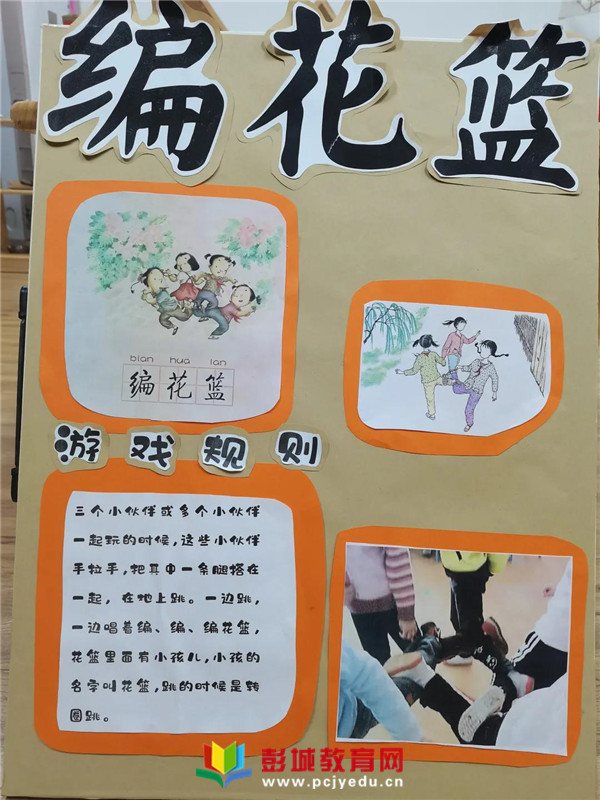 编花篮
bian hua lan
编花篮
游戏规则
三个小伙伴或多个小伙伴
一起玩的时候,这些小伙伴
手拉手,把其中一条腿搭在
一起,在地上跳。一边跳,
一边唱着编、编、编花篮,
花篮里面有小孩儿,小孩的
名字叫花篮,跳的时候是转
圈跳。
彭城教育网
www.pcjyedu.cn